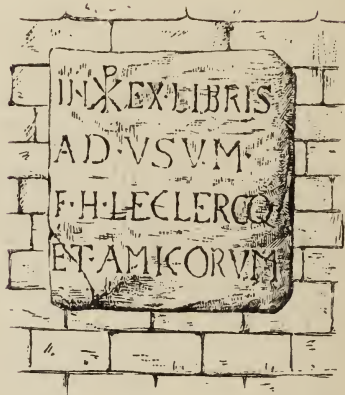 IN·☧·EX·LIBRIS
AD·VSVM·
F·H·LECLERCQ
ET·AMICORVM